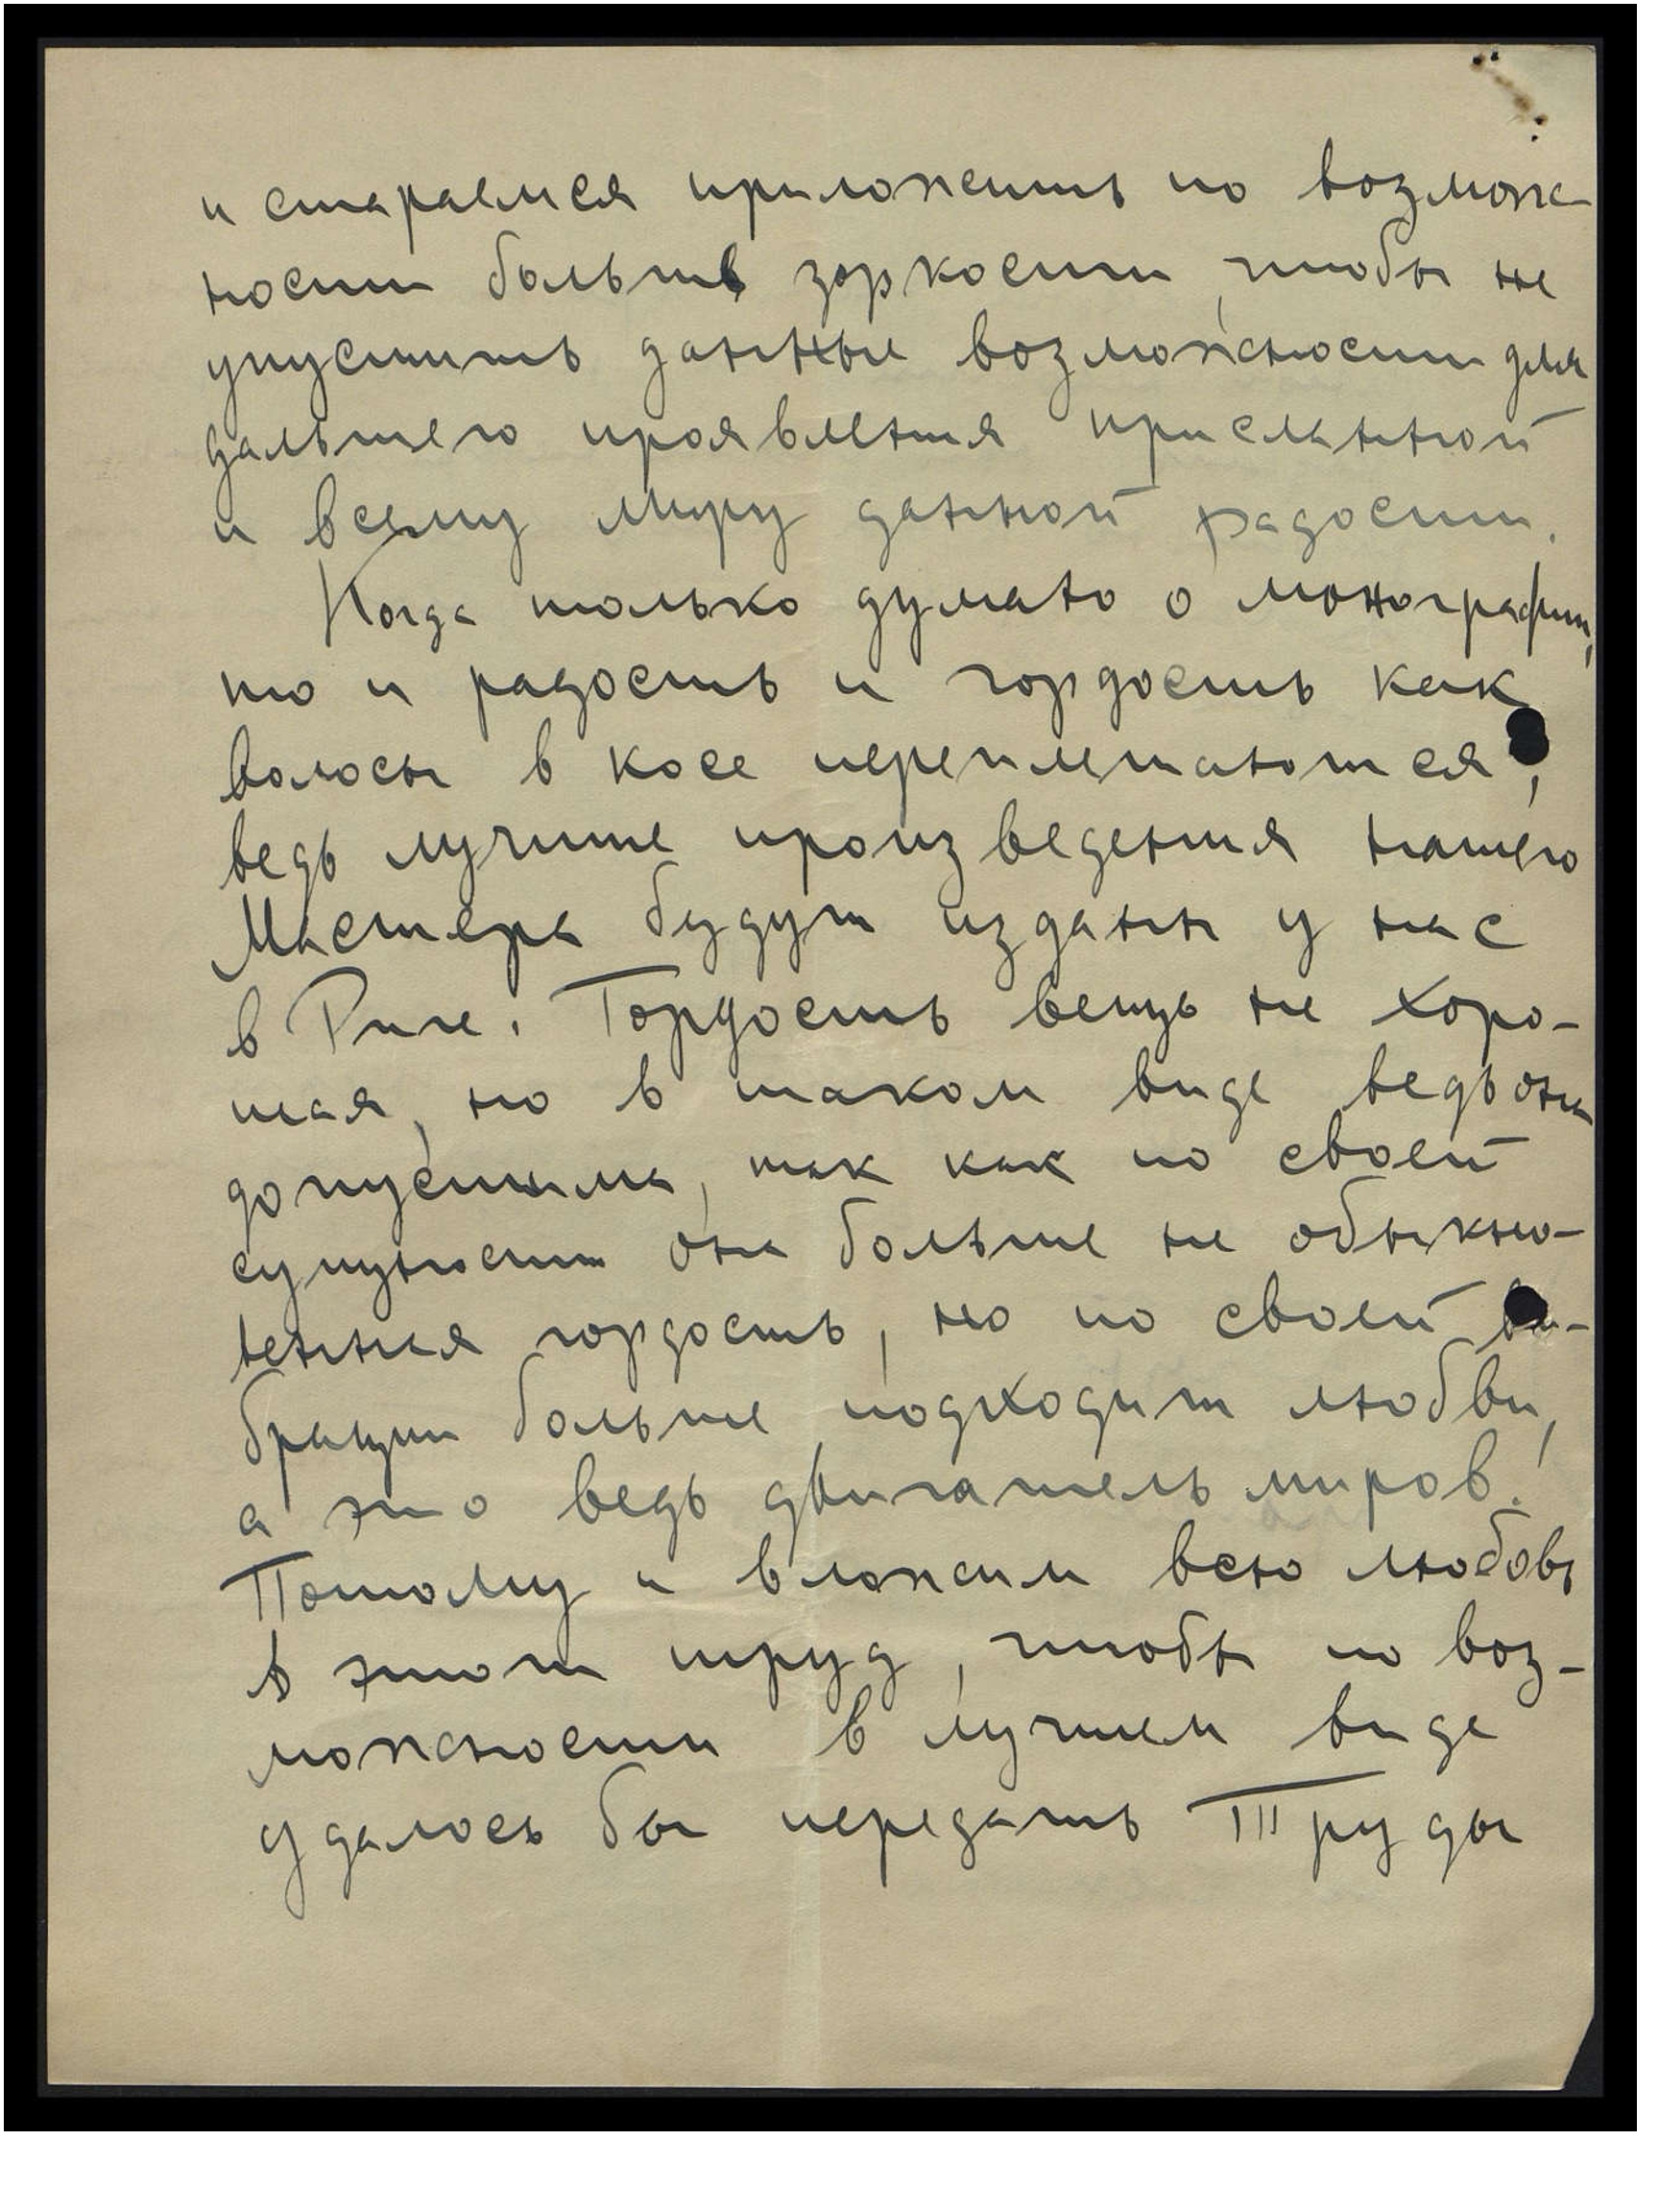 и стараемся приложить по возмож-
ности больше зоркости, чтобы не
упустить данные возможности для
дальшего проявления присланной
и всему миру данной радости.
Когда только думаю о монографии,
то и радость и гордость как
волосы в косе переплетаются,
ведь лучшие произведения нашего
Мастера будут изданы у нас
в Риге. Гордость вещь не хоро-
шая, но в таком виде ведь она
допустима, так как по своей
сущности она больше не обыкно-
венная гордость, но по своей ви-
брации больше подходит любви,
а это ведь двигатель миров!
Потому и вложим всю любовь
в этот труд, чтобы по воз-
можности в лучшем виде
удалось бы передать Труды